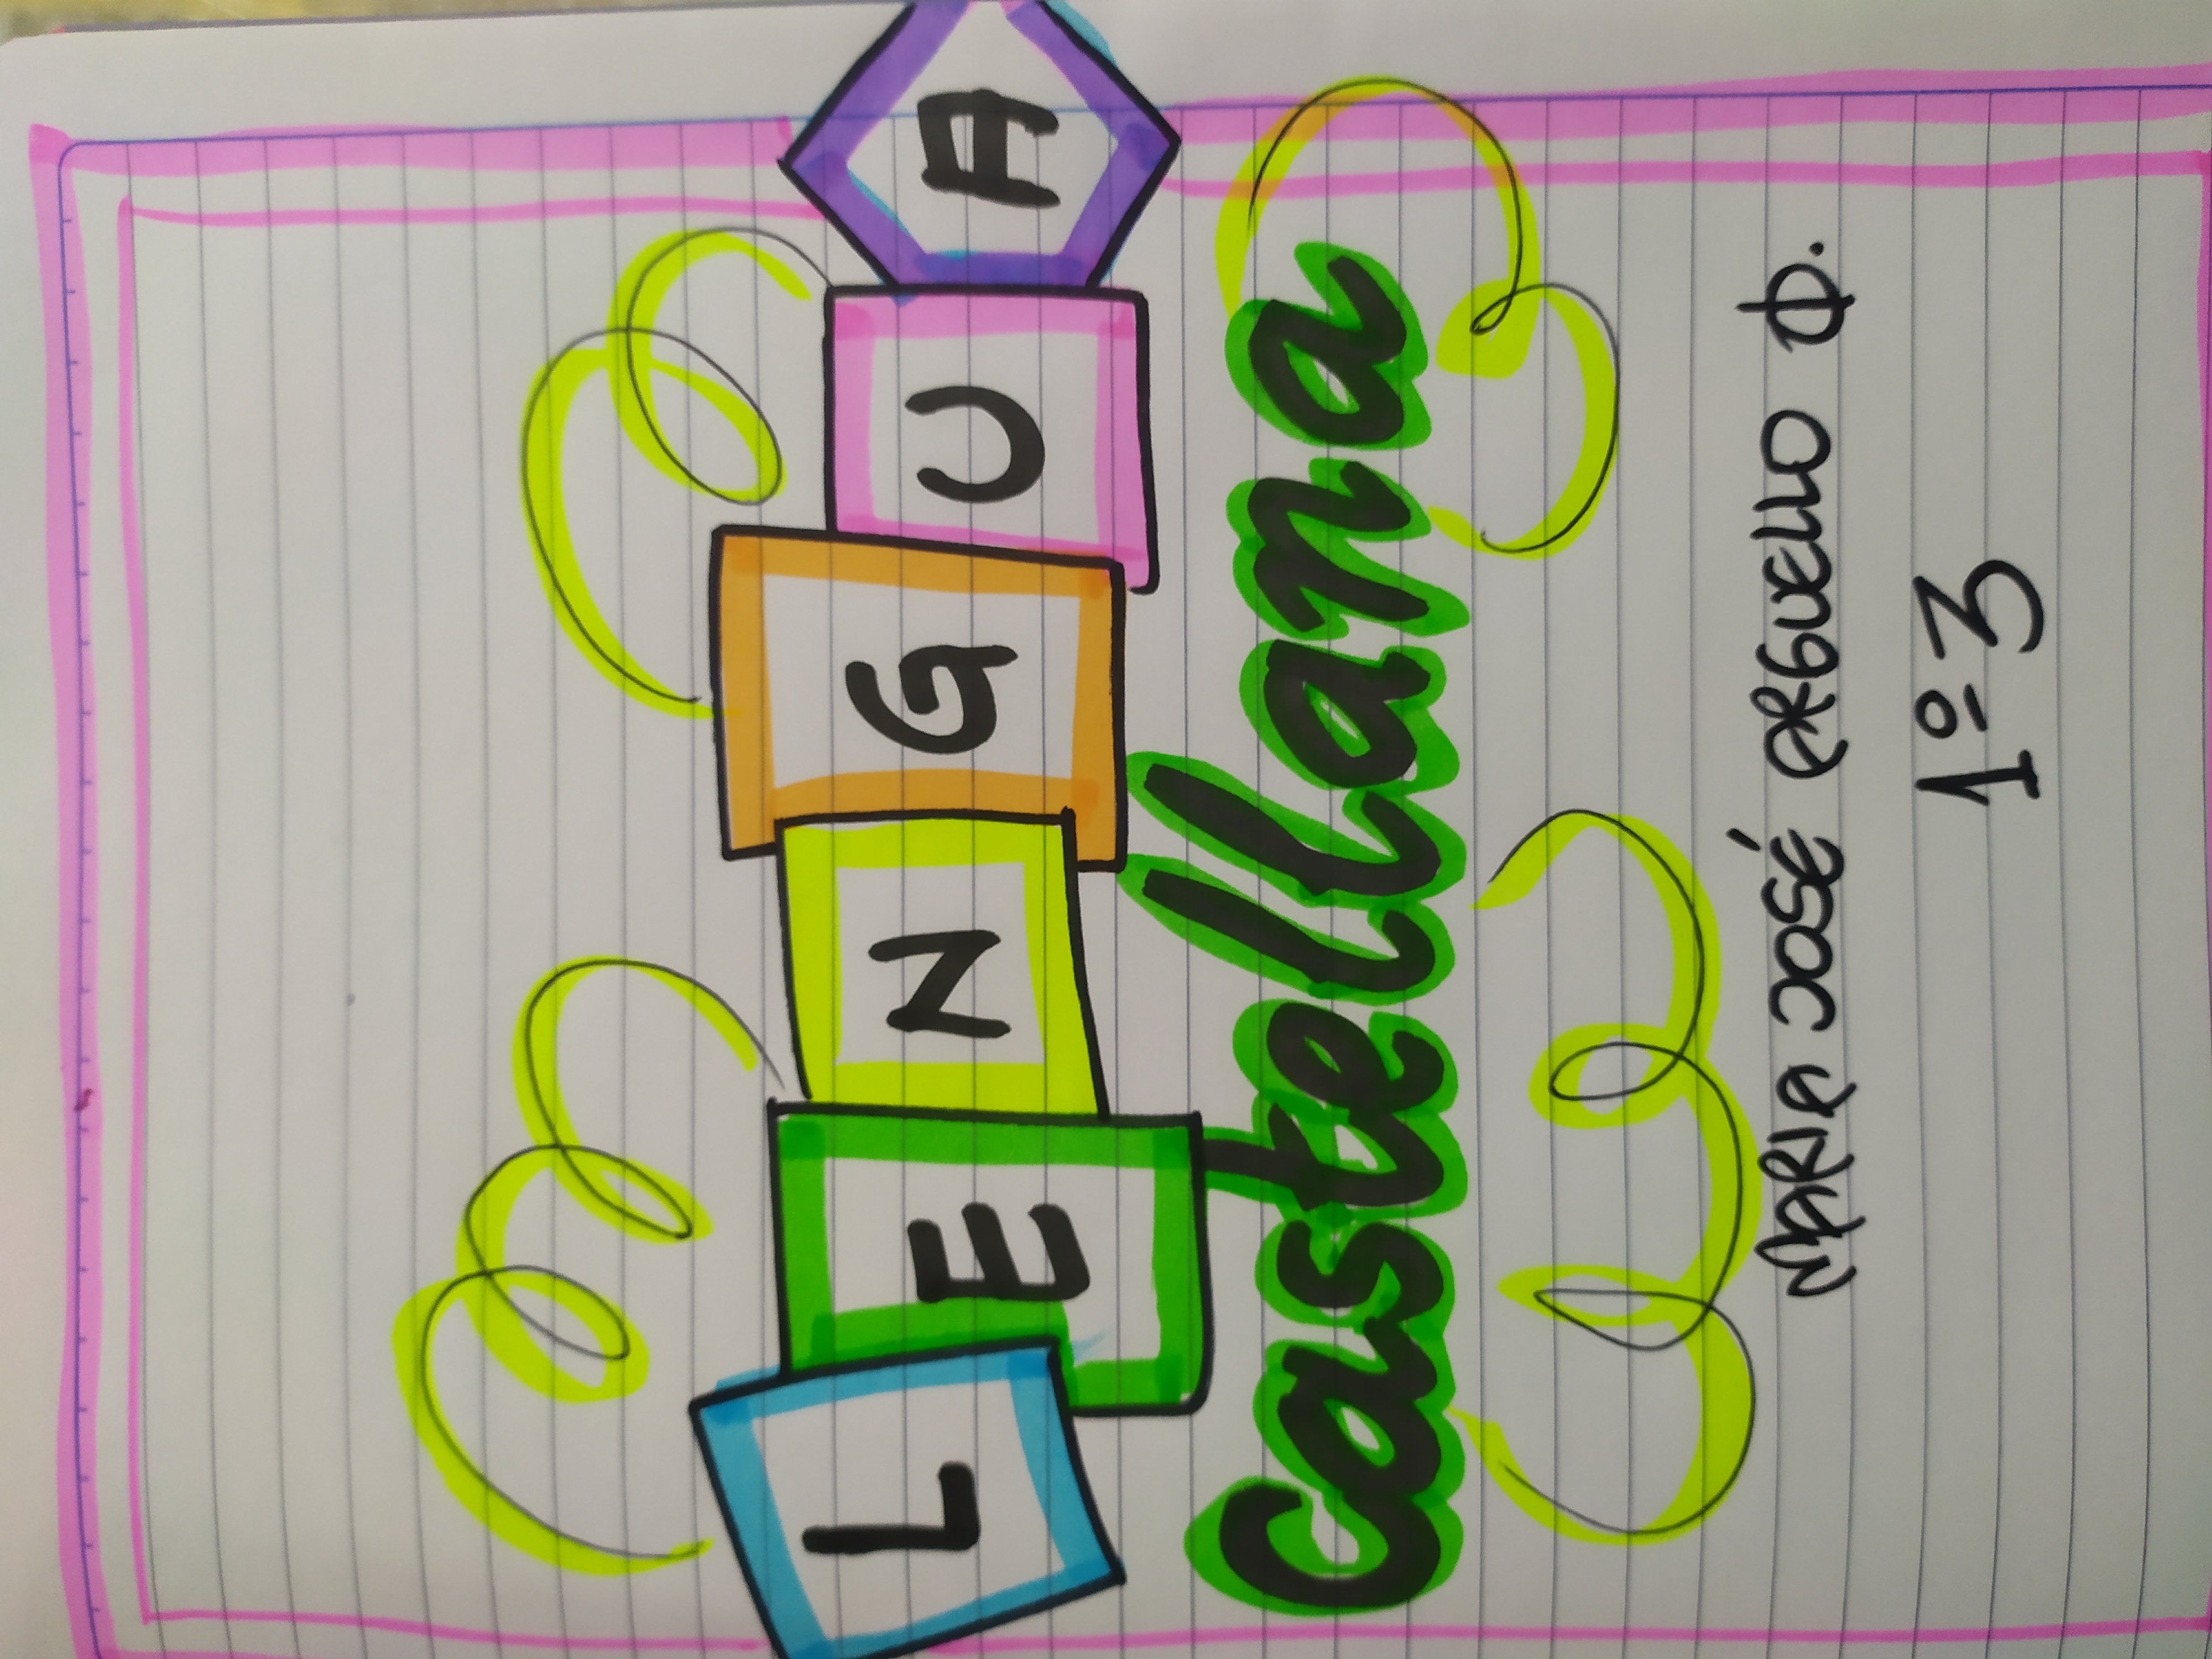 LENGUA
Castellana
MARIA JOSÉ ARGUELLO O.
1º3